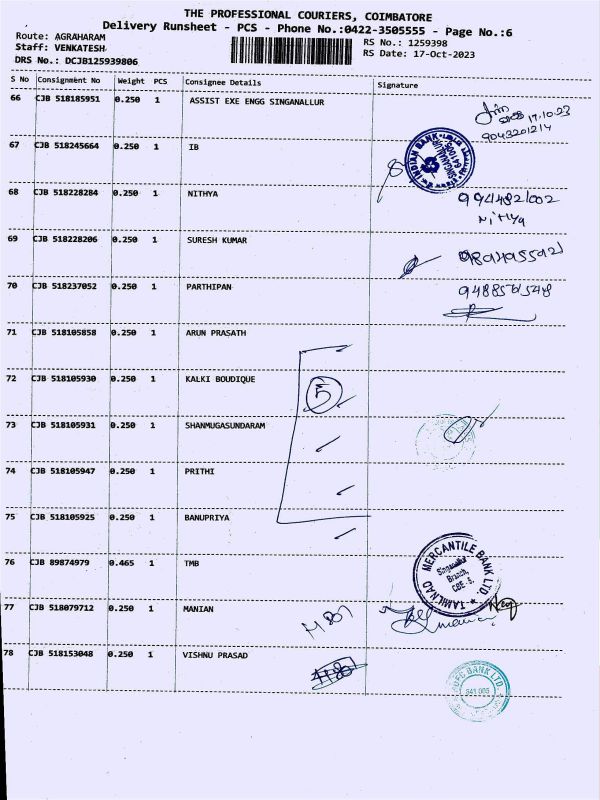 THE PROFESSIONAL COURIERS, COIMBATORE
Delivery Runsheet - PCS - Phone No.:0422-3505555 - Page No.:6
Route: AGRAHARAM
Staff: VENKATESH
DRS No.: DCJB125939806
RS No.: 1259398
RS Date: 17-Oct-2023
S No Consignment No Weight PCS Consignee Details Signature
66 CJB 518185951 0.250 1 ASSIST EXE ENGG SINGANALLUR
17.10.23
9043201214
67 CJB 518245664 0.250 1 IB
INDIAN BANK
SINGANALLUR
641005
68 CJB 518228284 0.250 1 NITHYA
9944821002
Nithya
69 CJB 518228206 0.250 1 SURESH KUMAR
70 CJB 518237052 0.250 1 PARTHIPAN
71 CJB 518105858 0.250 1 ARUN PRASATH
72 CJB 518105930 0.250 1 KALKI BOUDIQUE
5
73 CJB 518105931 0.250 1 SHANMUGASUNDARAM
74 CJB 518105947 0.250 1 PRITHI
75 CJB 518105925 0.250 1 BANUPRIYA
76 CJB 89874979 0.465 1 TMB
TAMILNAD MERCANTILE BANK LTD.
Singanallur
Branch,
CBE - 5.
77 CJB 518079712 0.250 1 MANIAN
78 CJB 518153048 0.250 1 VISHNU PRASAD
BANK LTD.
641 005